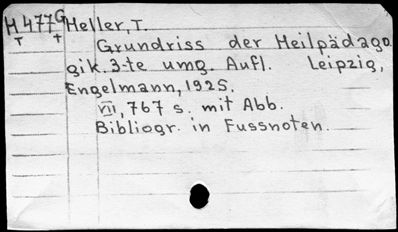 H 477G Heller, T.
T T
Grundriss der Heilpädago
gik. 3-te umg. Aufl. Leipzig,
Engelmann, 1925.
VII, 767 s. mit Abb.
Bibliogr. in Fussnoten.